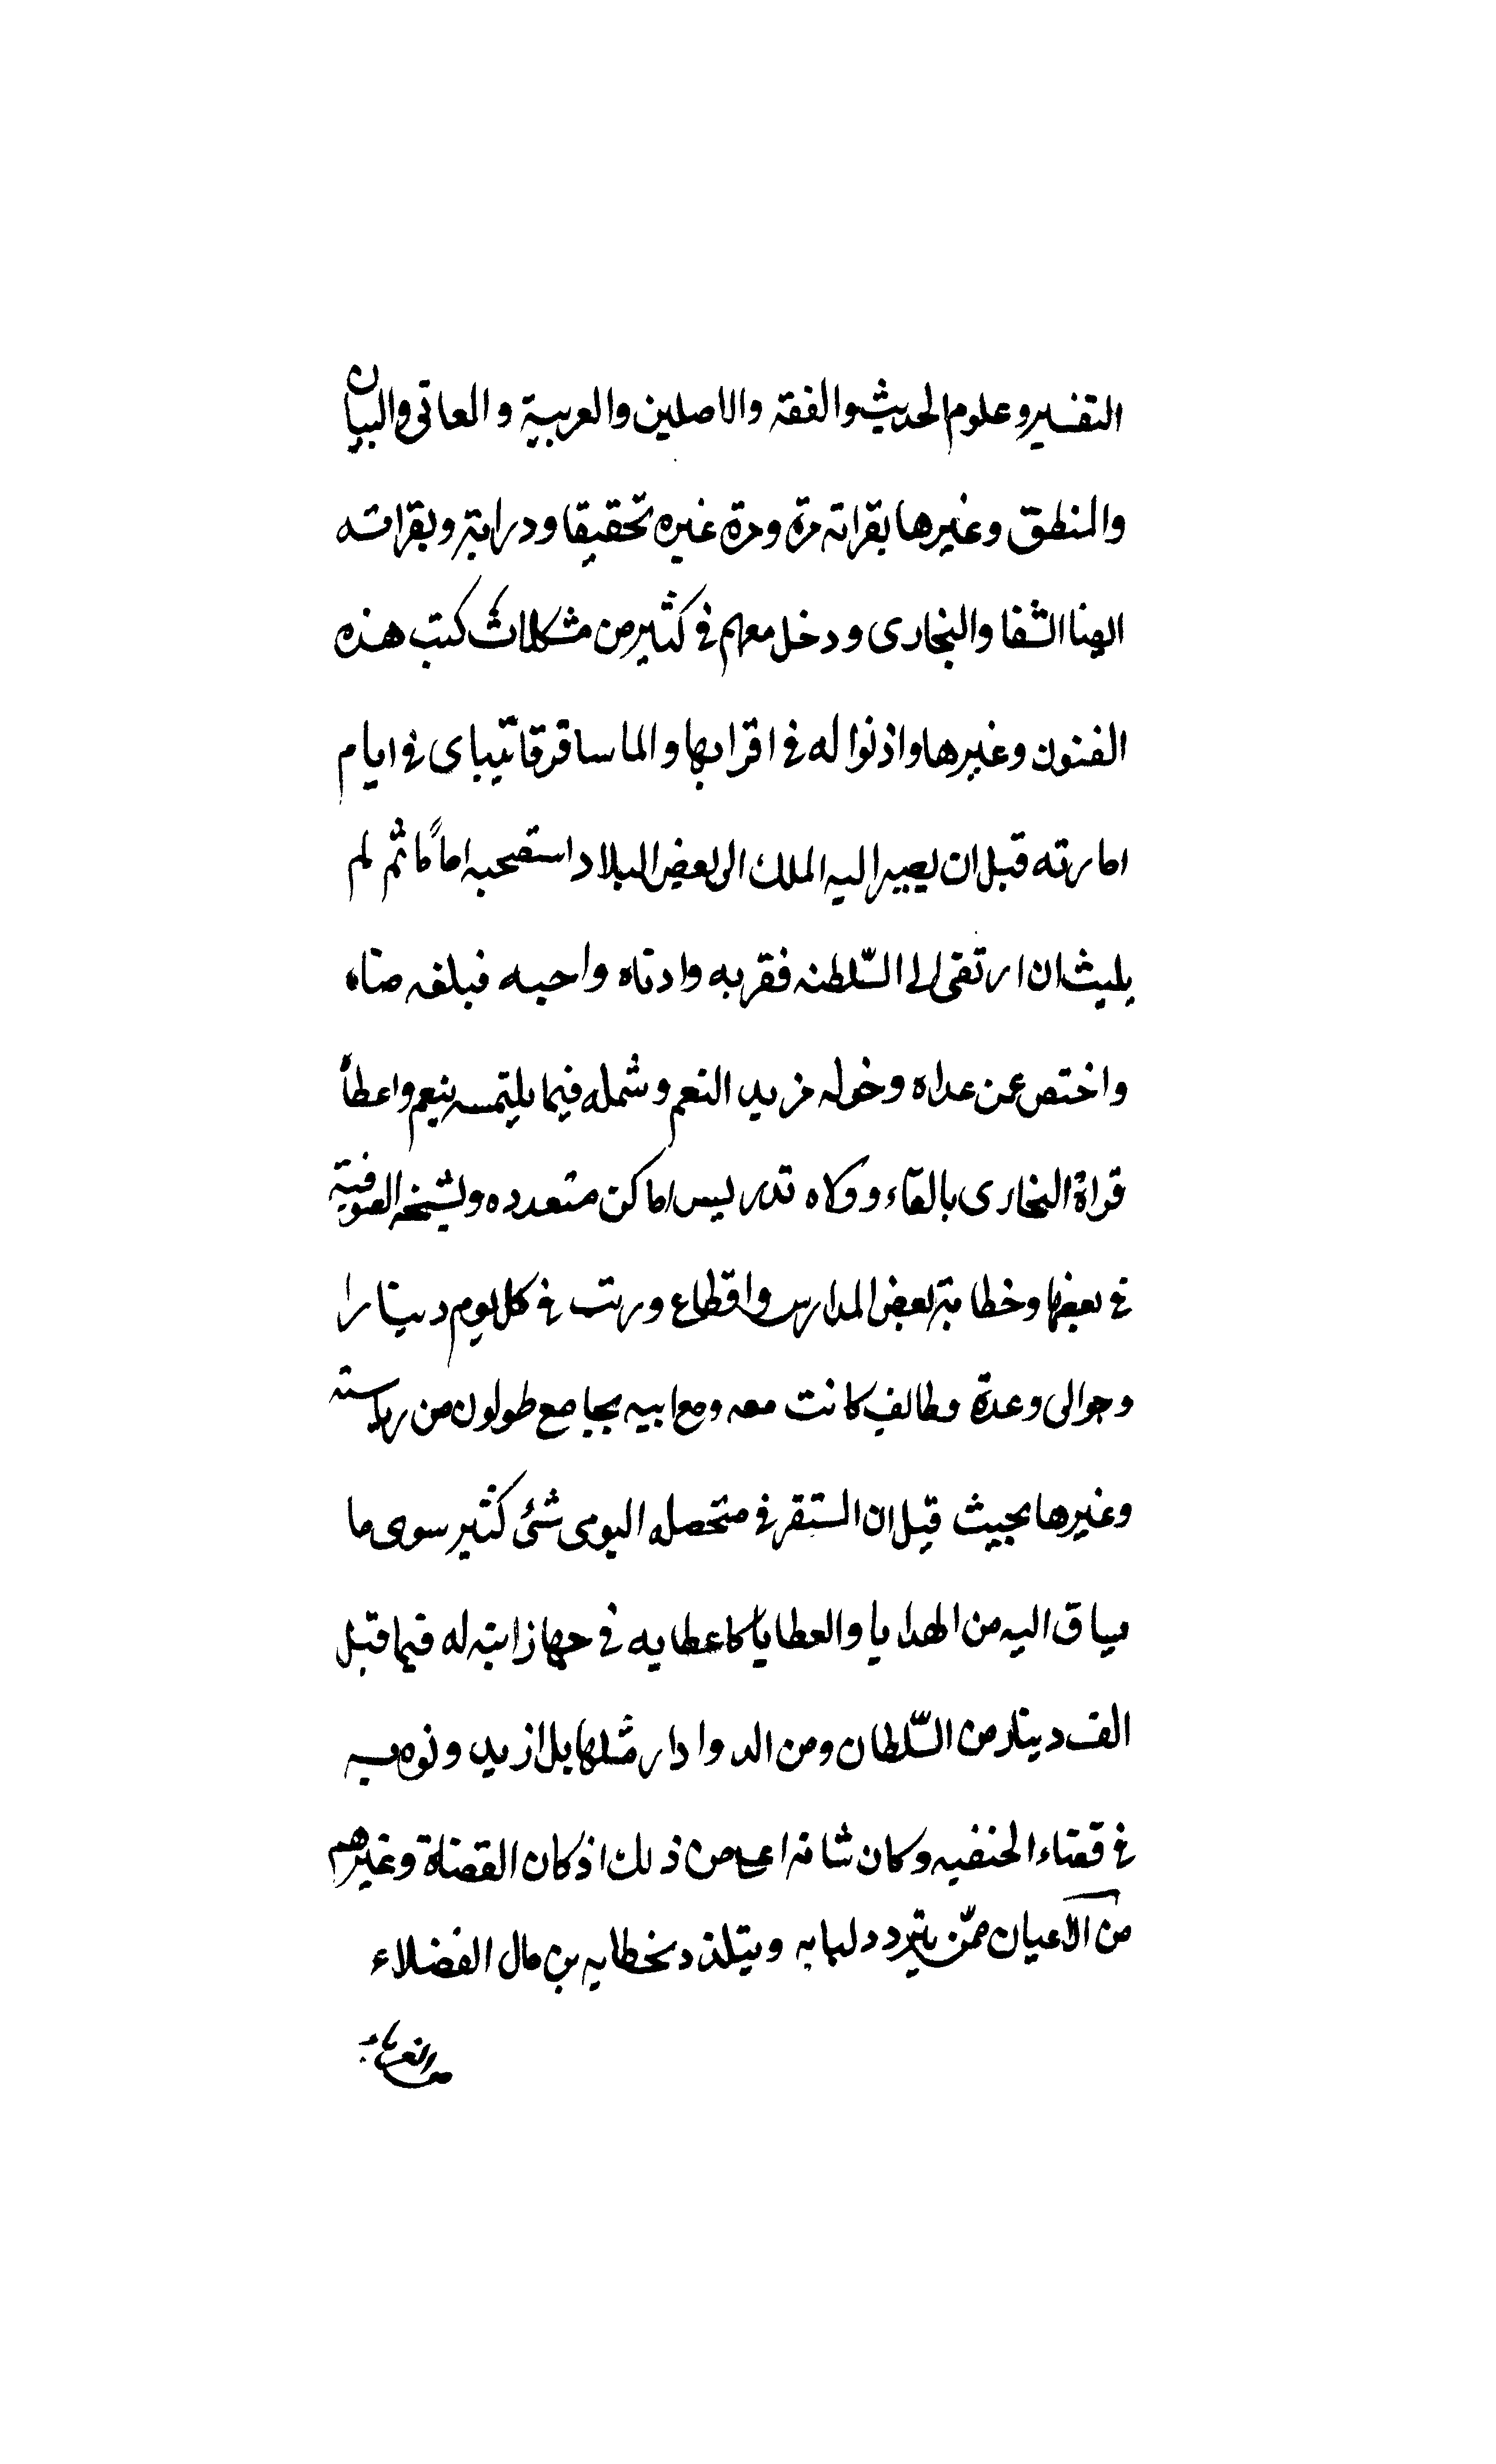 التفسير وعلوم الحديث والفقه والاصلين والعربية والمعانى والبيان
والمنطق وغيرها بقراته مرة ومرة غيره تحقيقا ودراية وبقراته
الشفا والبخارى ودخل معهم فى كثير من مشكلات كتب هذه
الفنون وغيرها واذنوا له فى اقرايها والما سافر قايتباى فى ايام
امارته قبل ان يصير اليه الملك الى بعض البلاد استصحبه اماما ثم لم
يلبث ان ارتقى الى السّلطنه فقربه وادناه واحبه فبلغه مناه
واختص عمن عداه وخوله مزيد النعم وشمله فيما يلتمسه بنعم واعطاه
قراة البخارى بالقلعة وولاه تدريس اماكن متعدده ومشيخه الصوفية
فى بعضها وخطابة بعض المدارس واقطاع ورتب فى كل يوم دينارا
وجوالى وعدة وظائف كانت معه ومع ابيه بجامع طولون من رياسته
وغيرها بحيث قيل ان المستقر فى متحصله اليومى شئ كثير سوى ما
يساق اليه من الهدايا والعطايا كاعطايه فى جهاز ابنة له فيما قيل
الف دينار من السّلطان ومن الدوادار مثلها بل ازيد ونوه به
فى قضاء الحنفيه وكان شانه اعلى من ذلك اذ كان القضاة وغيرهم
من الاعيان ممّن يتردد لبابه ويتلذذ بخطابه بن مال الفضلاء